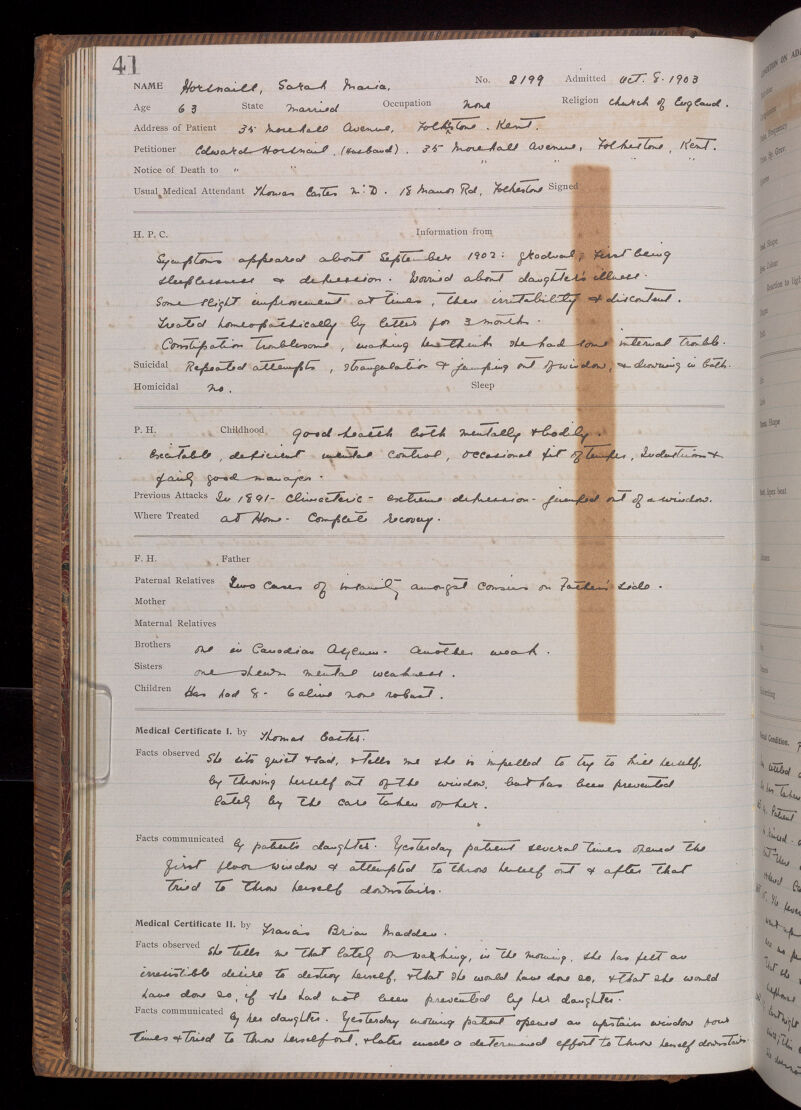 41
NAME Horsnaill, Sarah Maria. No. 2199 Admitted Oct. 8. 1903
Age 63 State Married Occupation None Religion Church of England.
Address of Patient 35 Morehall Avenue, Folkestone. Kent.
Petitioner Edward Horsnaill, (Husband). 35 Morehall Avenue, Folkestone, Kent.
Notice of Death to " " " " "
Usual Medical Attendant Thomas Eastes M.D. 18 Manor Rd, Folkestone Signed
H. P. C. Information from
Symptoms appeared about September 1902: gradual, first being
sleeplessness & depression. Worried about daughter's illness.
Some slight improvement at times, then irritability & discontent.
Treated homeopathically by letter for 3 months.
Constipation troublesome, making her think she had some internal trouble.
Suicidal Repeated attempts, strangulation & jumping out of window, & drowning in bath.
Homicidal No. Sleep
P. H. Childhood good health both mentally & bodily.
Excitable, deficient mental control, occasional fit of temper, Industrious &
fairly good manager.
Previous Attacks In 1891 - climacteric - extreme depression - jumped out of a window.
Where Treated at Home. Complete recovery.
F. H. Father
Paternal Relatives Two cases of insanity amongst cousins on Father's side.
Mother
Maternal Relatives
Brothers one in Canadian Asylum. another weak.
Sisters one shewn mental weakness.
Children Has had 8 - 6 alive none robust.
Medical Certificate I. by Thomas Eastes.
Facts observed She sits quiet & sad, & tells me she is impelled to try to kill herself,
by throwing herself out of the window, but has been prevented
lately by the care taken of her.
Facts communicated By patients daughter. Yesterday patient several times opened the
first floor window & attempted to throw herself out & after that
tried to throw herself downstairs.
Medical Certificate II. by Francis Brian Madden.
Facts observed She tells me that lately on waking, in the morning, she has felt an
irresistible desire to destroy herself, & that she would have done so, & that she would
have done so, if she had not been prevented by her daughter.
Facts communicated By her daughter. Yesterday morning patient opened an upstairs window four
times & tried to throw herself out, & later made a determined effort to throw herself downstairs.